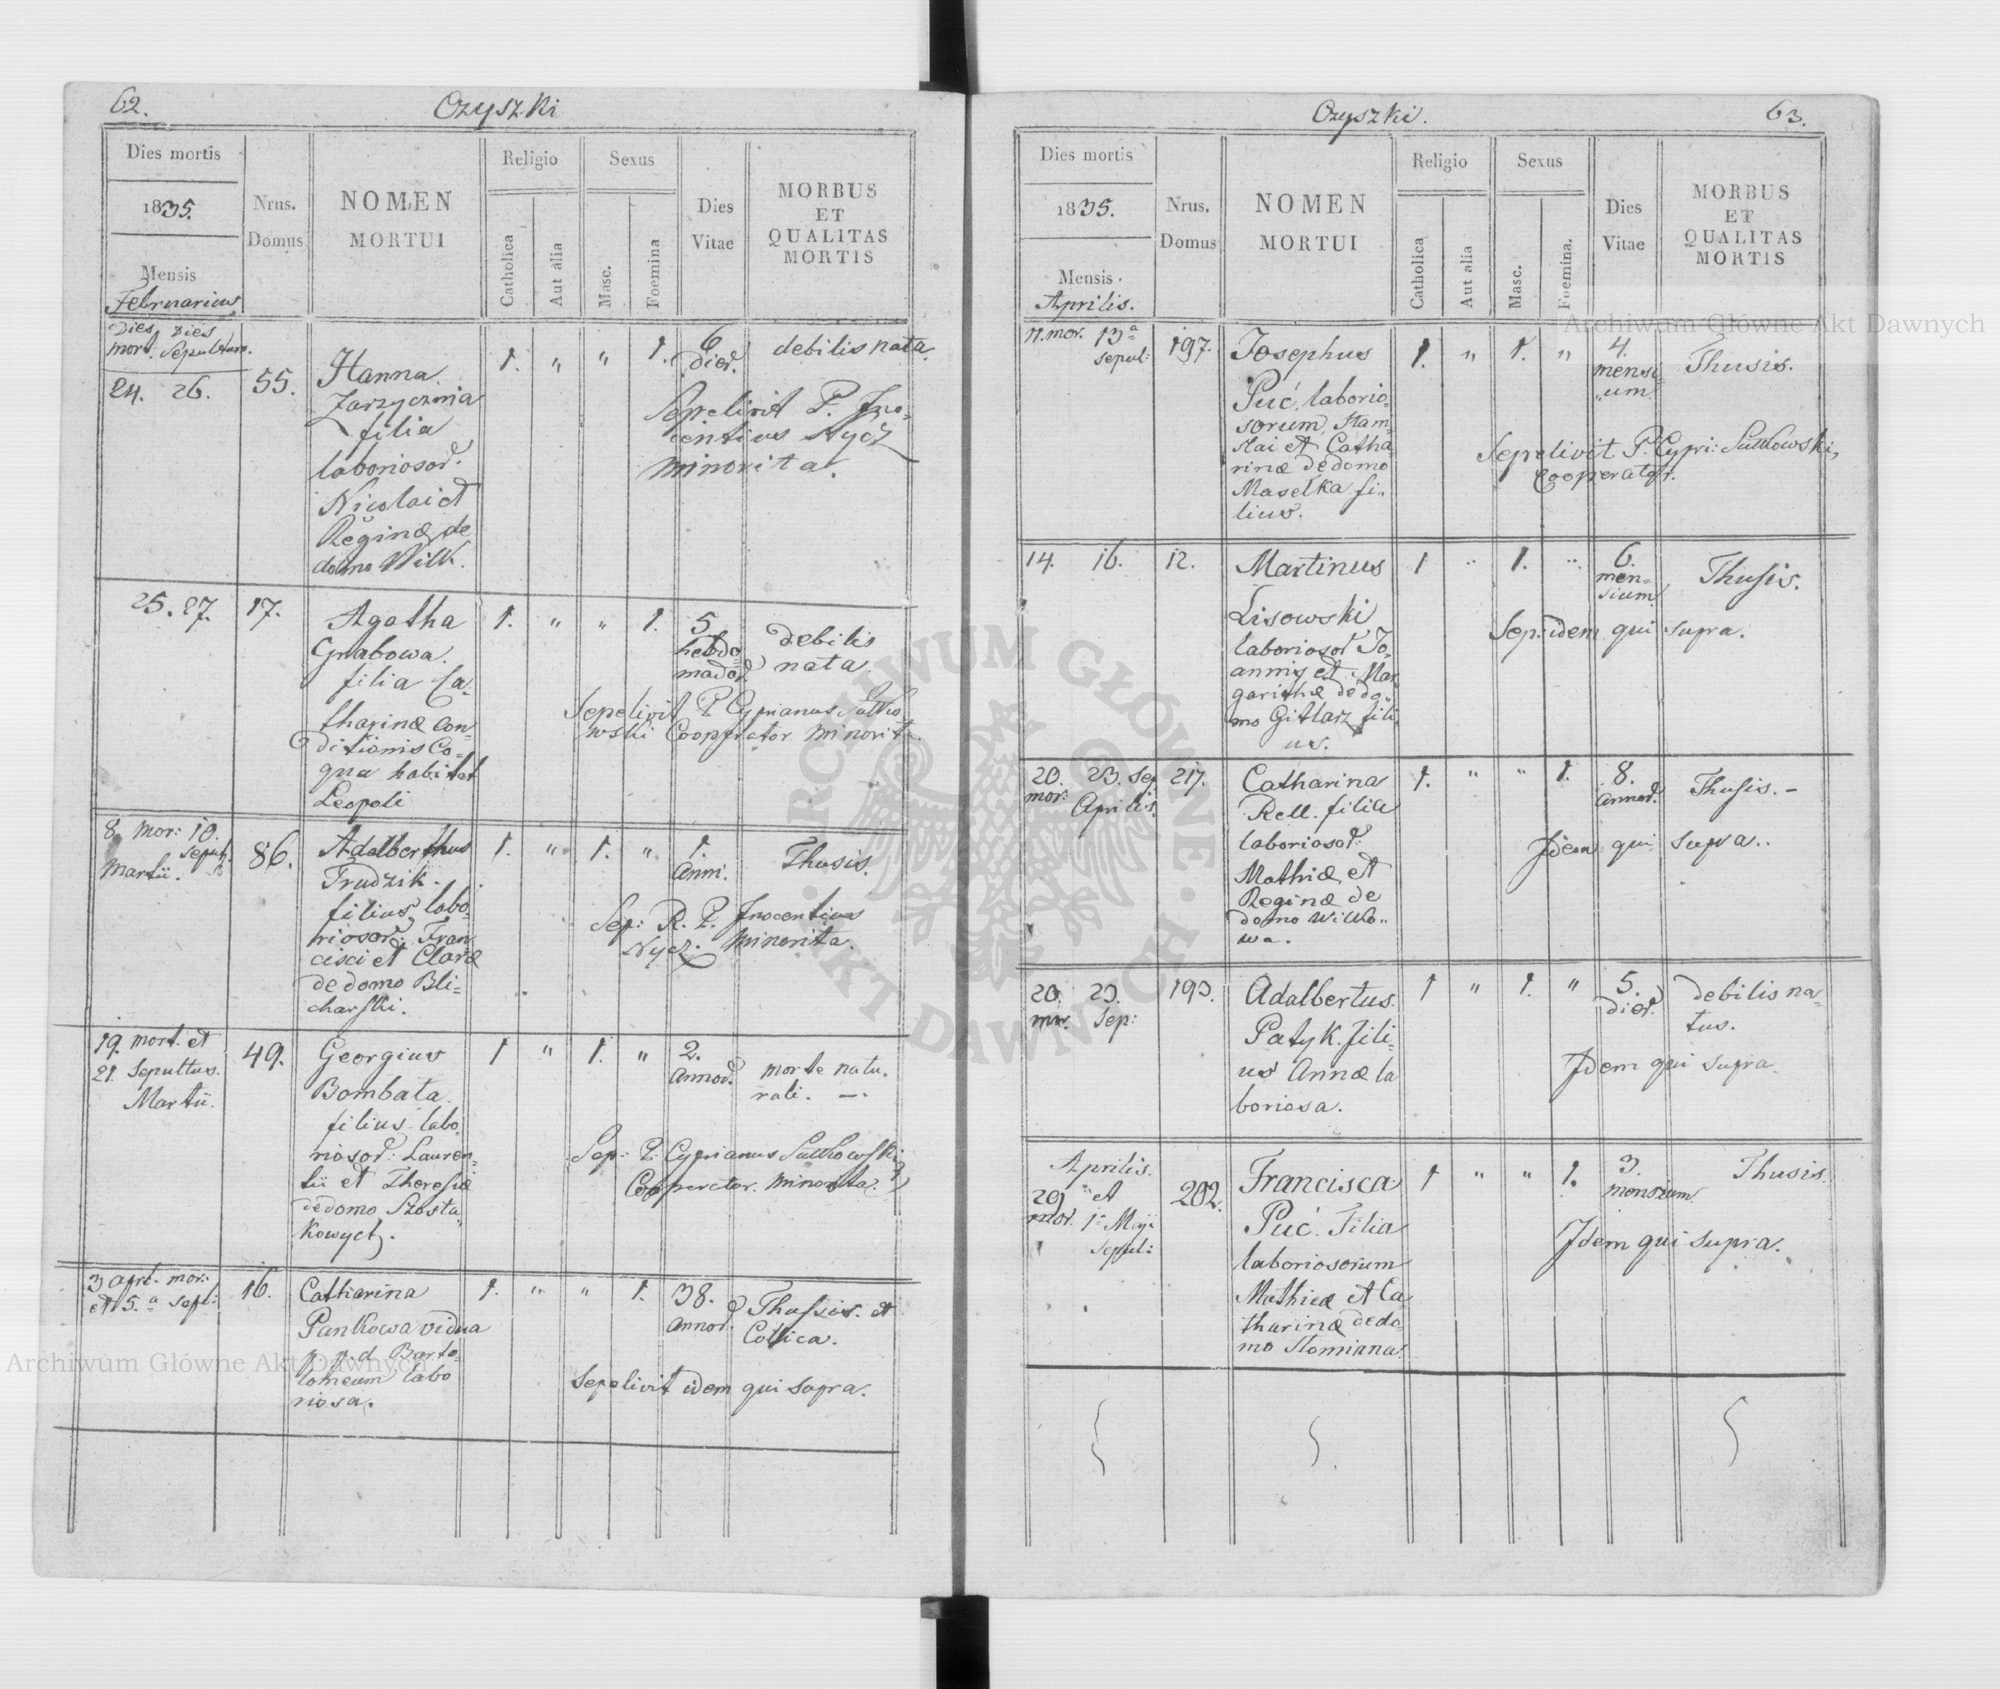 62.
Czyszki
Dies mortis
1835.
Mensis
Februarius
Nrus.
Domus
NOMEN
MORTUI
Religio
Catholica
Aut alia
Sexus
Masc.
Foemina
Dies
Vitae
MORBUS
ET
QUALITAS
MORTIS
Dies Dies
mort. Sepulturae.
24. 26.
55.
Hanna
Zarzycznia
filia
laborioso
Nicolai et
Reginæ de
domo Wilk.
1. " " 1.
6
dier.
debilis nata.
Sepelivit P. Jno-
centius Nycz
minorita.
25. 27.
17.
Agatha
Grabowa.
filia Ca-
tharinæ con-
ditionis Co-
qua habitat
Leopoli
1. " " 1.
5
hebdo
mador
debilis
nata
Sepelivit P. Cyprianus Sutko
wski Cooperator minorita.
8 mor: 10.
Sepult.
Martii.
86.
Adalberthus
Frudzik.
filius labo-
riosor: Fran
cisci et Claræ
de domo Bli-
charski.
1. " 1. "
1.
Anni.
Thusis.
Sep: R. P. Jnocentius
Nycz. Minorita.
19. mort. et
21. Sepultus.
Martii.
49.
Georgius
Bombata.
filius labo
riosor: Lauren-
tii et Theresiæ
de domo Szosta-
kowych.
1 " 1. "
2.
Annor.
morte natu-
rali. —.
Sep: P. Cyprianus Sutkowski
Cooperator. minorita.
3 aprl. mor:
et 5.a sepl:
16.
Catharina
Pankowa vidua
p. p. d Barto-
lomeum labo
riosa.
1. " " 1.
38.
annor.
Thussis. et
Collica.
sepelivit idem qui supra.
Czyszki.
63.
Dies mortis
1835.
Mensis
Aprilis.
Nrus.
Domus
NOMEN
MORTUI
Religio
Catholica
Aut alia
Sexus
Masc.
Foemina.
Dies
Vitae
MORBUS
ET
QUALITAS
MORTIS
11. mor. 13a
sepul:
197.
Josephus
Puć laborio-
sorum Stani-
slai et Catha
rinæ de domo
Maselka fi-
lius.
1. " 1. "
4.
mensi-
um.
Thusis.
Sepelivit P. Cypri: Sutkowski,
Cooperator.
14. 16.
12.
Martinus
Lisowski
laborioso Jo-
annis et Mar
garithæ de do-
mo Gitlarz fili
us.
1 " 1. "
6.
men-
sium
Thusis.
Sep: idem qui supra.
20. 23. Sep
mor: Aprilis
217.
Catharina
Rell. filia
laboriosor
Mathiæ et
Reginæ de
domo Wilko-
wa.
1. " " 1.
8.
Annor.
Thusis. -
Jdem qui supra..
20. 23.
mor. Sep:
193.
Adalbertus
Patyk. fili-
us Annæ la
boriosa.
1 " 1. "
5.
dier.
debilis na-
tus.
Jdem qui supra.
Aprilis.
29 et
mor. 1a Maji
sepul:
202.
Francisca
Puć. Filia
laboriosorum
Mathiæ et Ca-
tharinæ de do-
mo Stomiana.
1 " " 1.
3.
mensium
Thusis.
Jdem qui supra.
Archiwum Główne Akt Dawnych
Archiwum Główne Akt Dawnych
ARCHIWUM GŁÓWNE
AKT DAWNYCH